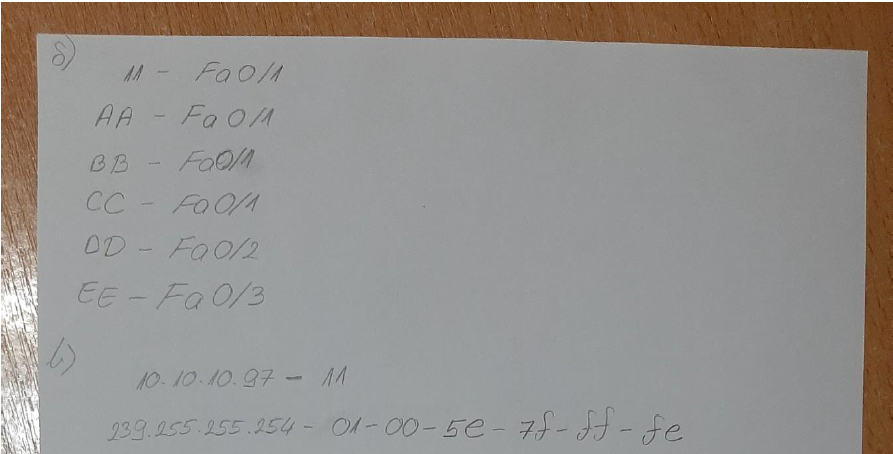 б)
11 - Fa0/1
AA - Fa0/1
BB - Fa0/1
CC - Fa0/1
DD - Fa0/2
EE - Fa0/3
в)
10.10.10.97 - 11
239.255.255.254 - 01-00-5e-7f-ff-fe